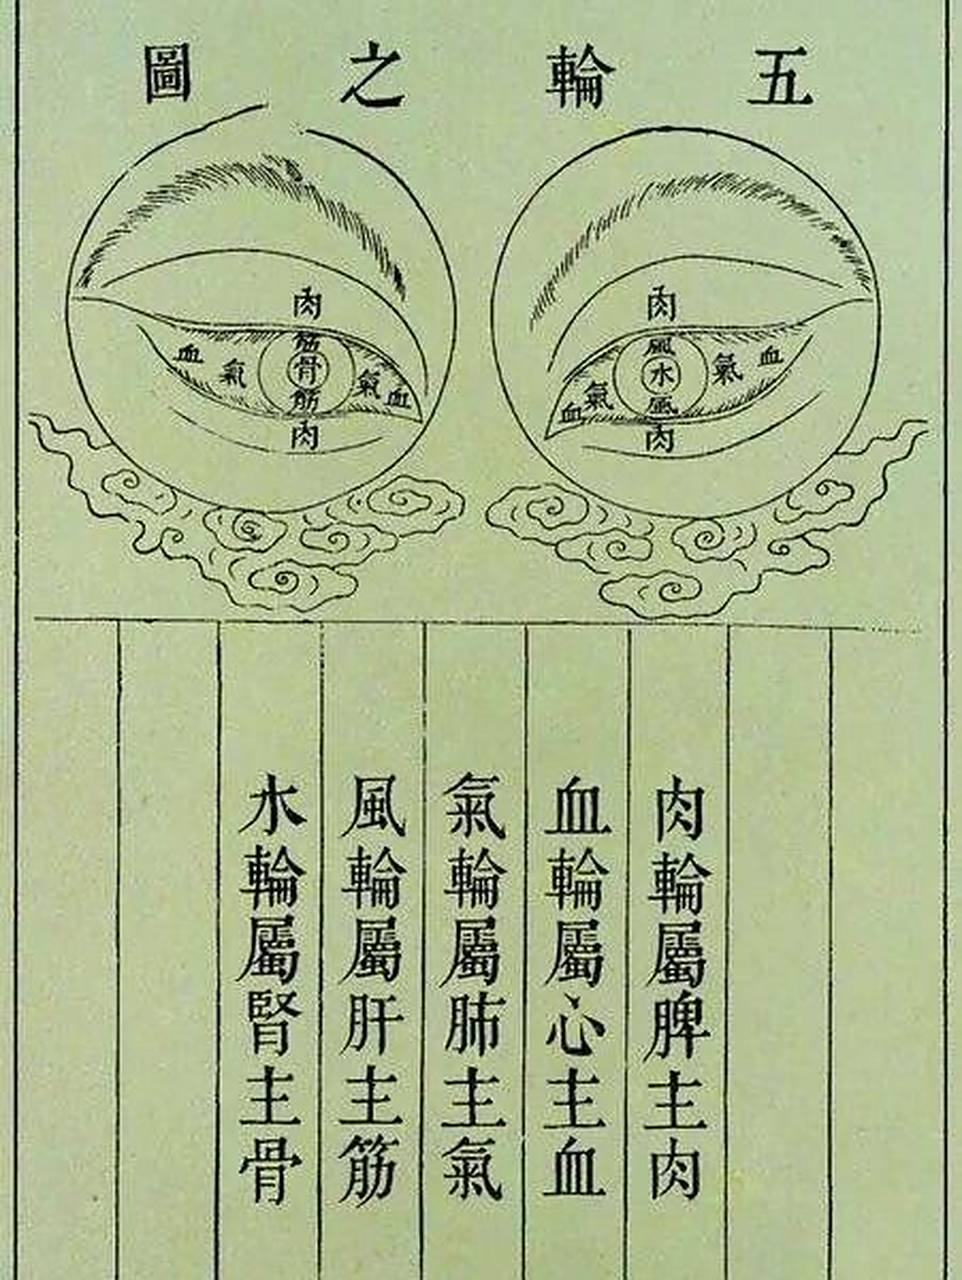 五輪之圖
肉
風
水
風
肉
血
氣
氣
血
肉
筋
骨
筋
肉
血
氣
氣
血
肉輪屬脾主肉
血輪屬心主血
氣輪屬肺主氣
風輪屬肝主筋
水輪屬腎主骨